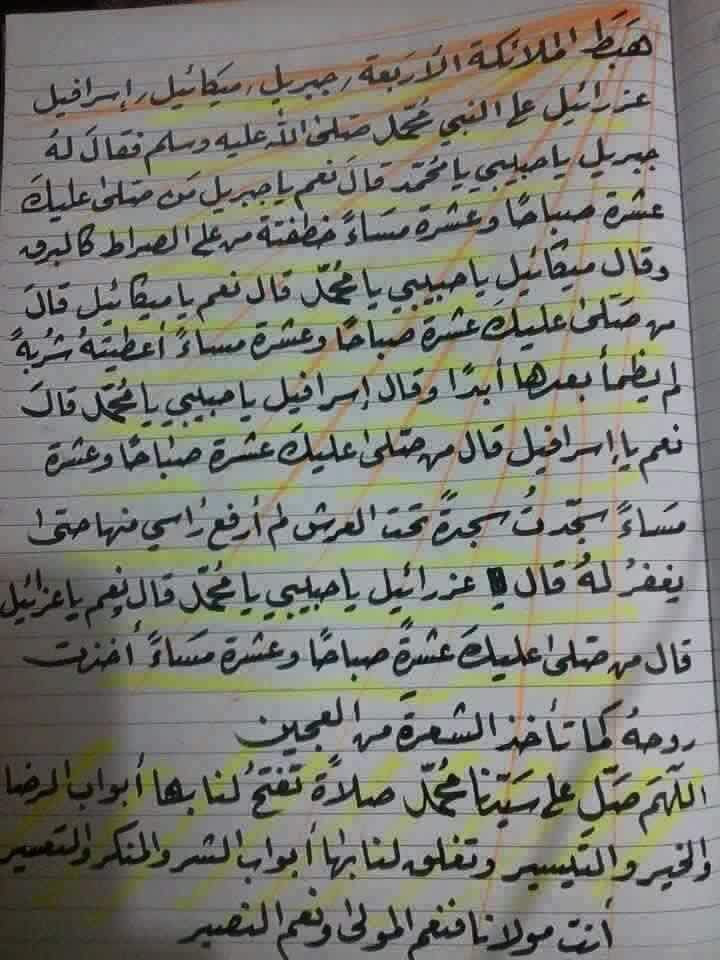 هَبَطَ الملائكة الأربعة، جبريل، ميكائيل، إسرافيل
عزرائيل على النبي مُحمّد صَلىٰ الله عليه وسلم فقالَ لهُ
جبريل يا حبيبي يا مُحمّد قالَ نعم يا جبريل مَن صَلىٰ عليكَ
عشرة صباحًا وعشرة مَساءً خطفتة من على الصراط كالبرق
وقال ميكائيل يا حبيبي يا مُحمّد قال نعم يا ميكائيل قالَ
من صَلىٰ عليكَ عشرة صباحًا وعشرة مساءً أعطيتهُ شربةً
لم يظمأ بعدها أبدًا وقال إسرافيل يا حبيبي يا مُحمّد قالَ
نعم يا إسرافيل قال من صَلىٰ عليكَ عشرة صباحًا وعشرة
مَساءً سجّدتُ سجدةً تحت العرش لم أرفع رأسي منها حتىٰ
يغفرُ لهُ قال عزرائيل يا حبيبي يا مُحمّد قال نعم يا عزائيل
قال من صَلىٰ عليكَ عشرةً صباحًا وعشرة مَساءً أخذت
روحهُ كما تأخذ الشعرة من العجين
اللّهمَ صَلِّ على سَيّدنا مُحمّد صلاةً تفتحُ لنا بها أبواب الرضا
والخير والتيسير وتغلق لنا بها أبواب الشر والمنكر والتعسير
أنت مولانا فنعم المولىٰ ونعم النصير